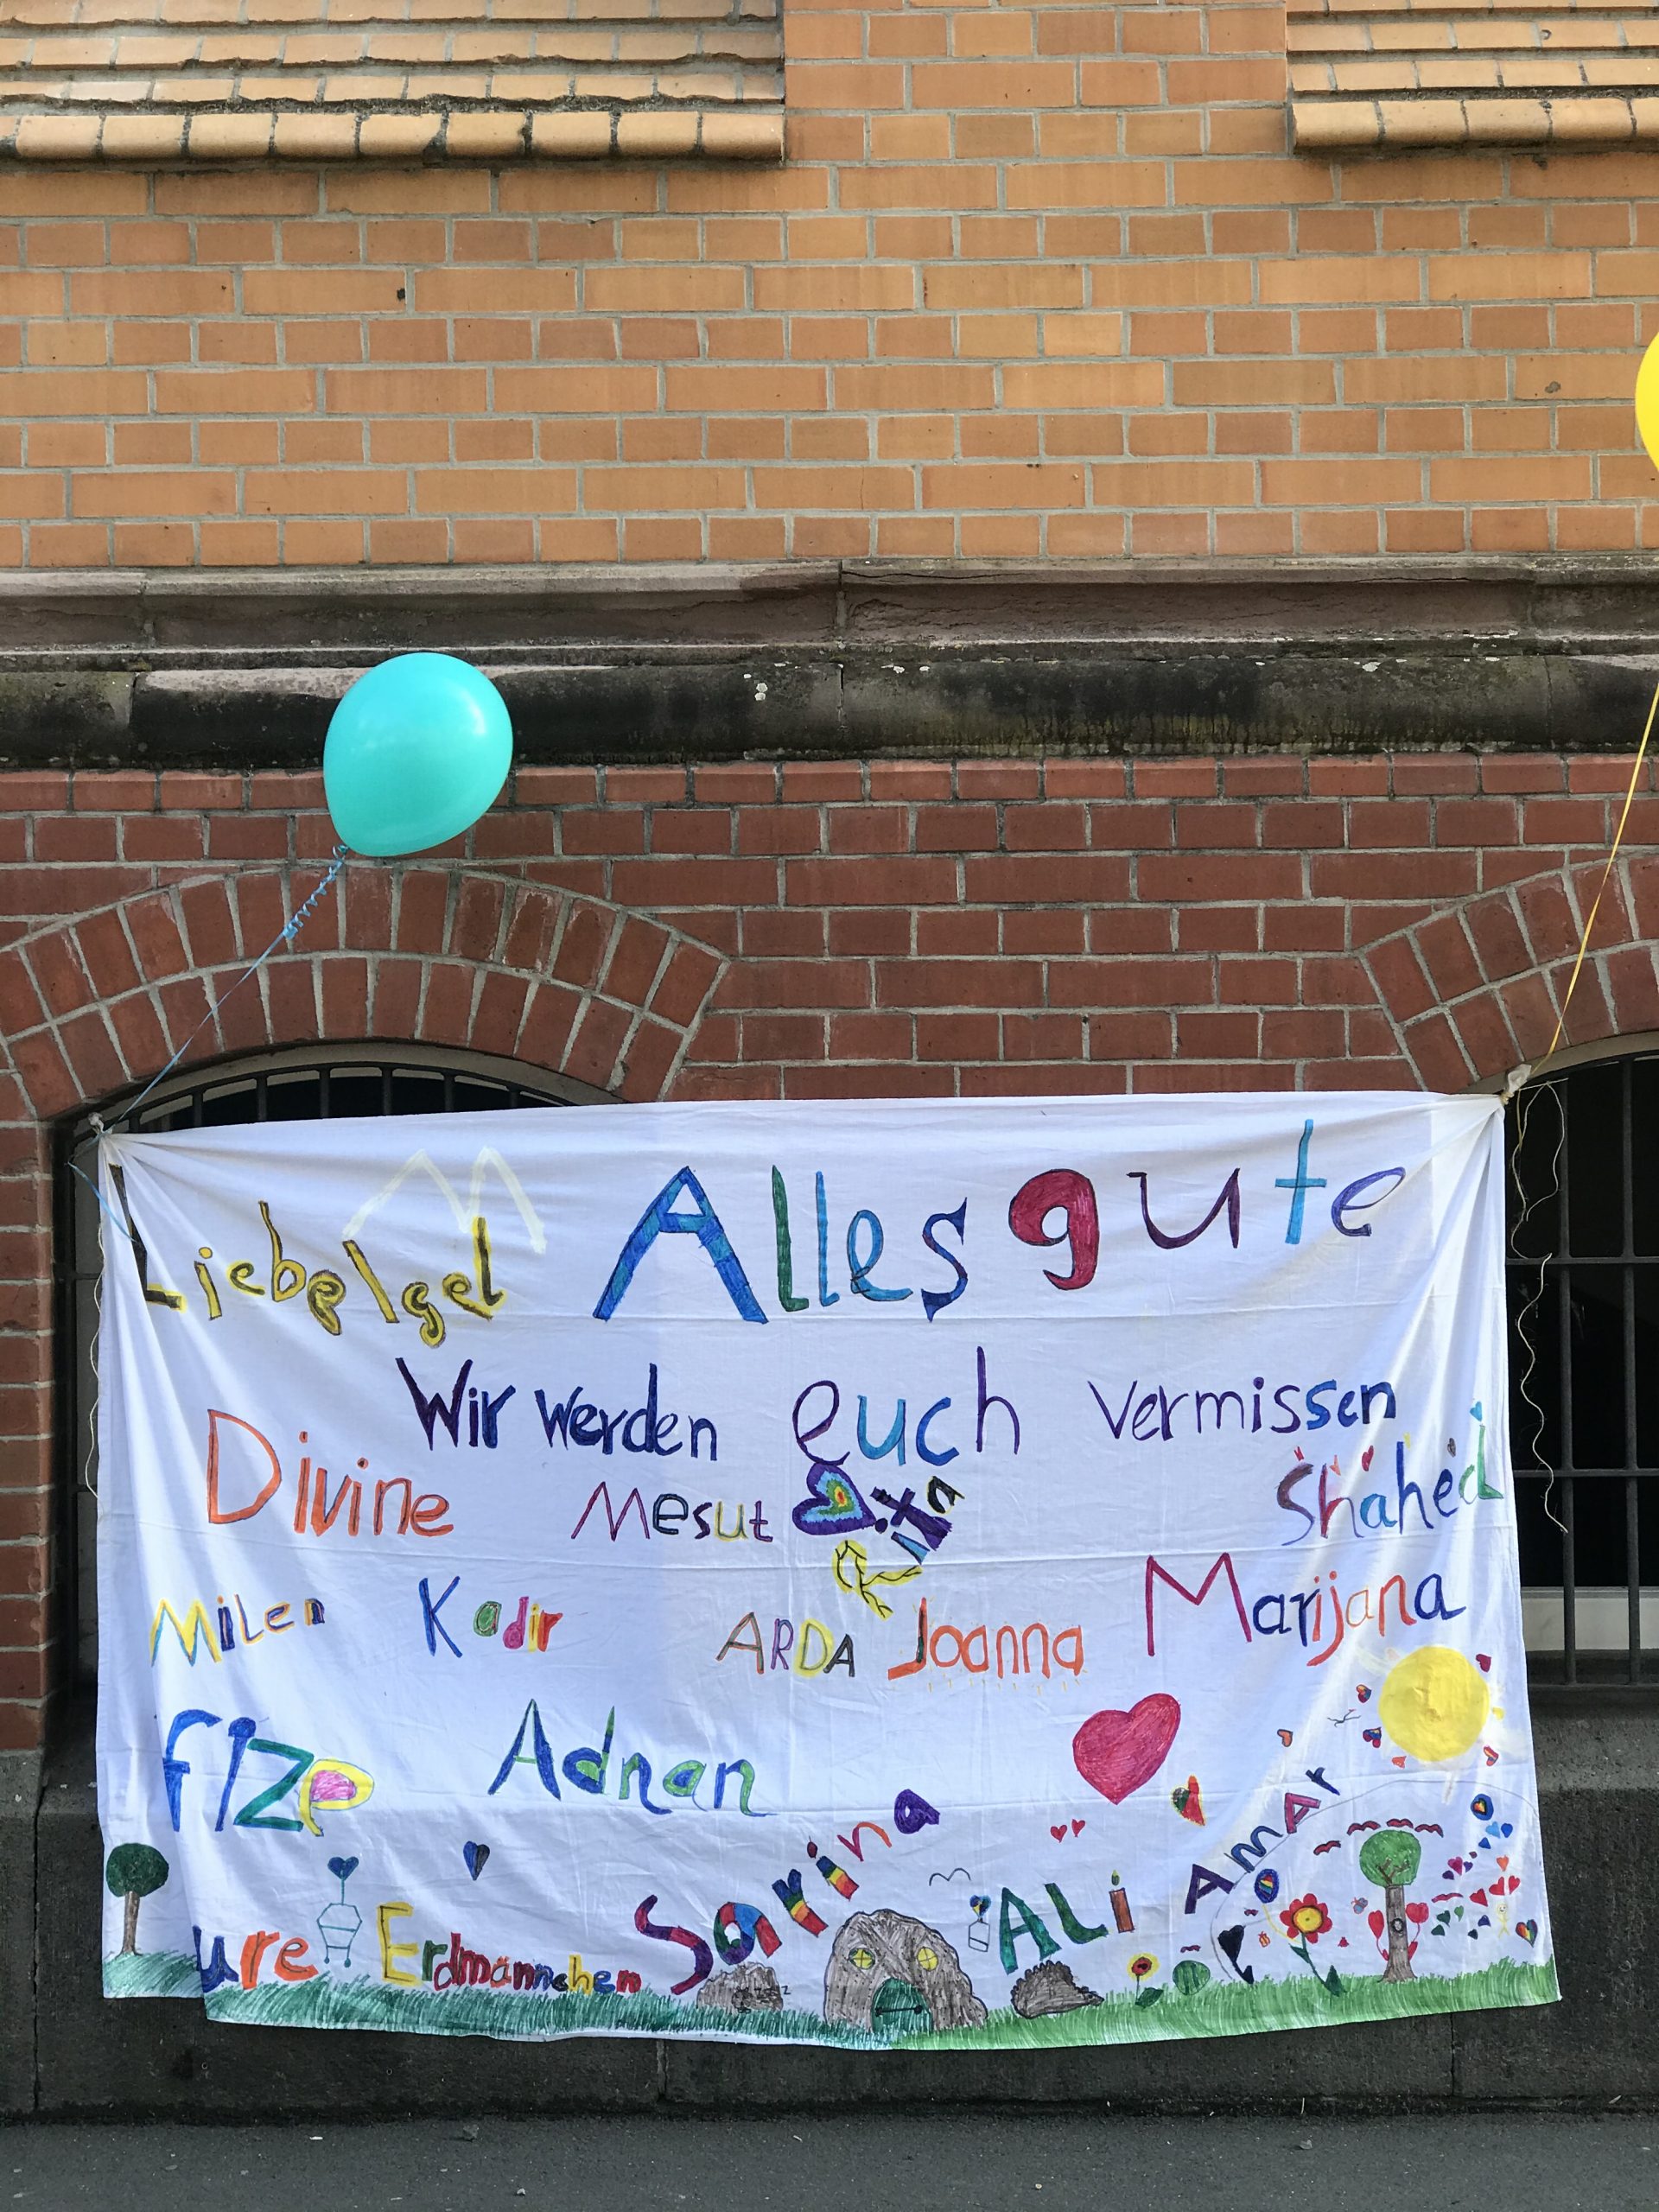 Liebe Igel Alles gute
Wir werden euch vermissen
Divine Mesut Shahed
Milen Kadir ARDA Joanna Marijana
fIze Adnan
ure Erdmännchen Sorina ALi AmAr